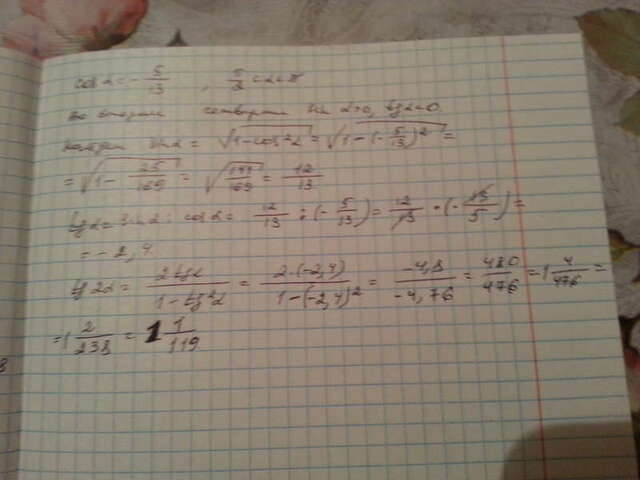 cos α = - 5/13 , π/2 < α < π
Во второй четверти sin α>0, tg α<0
Найдём sin α = √(1-cos²α) = √(1-(-5/13)²) =
= √(1 - 25/169) = √(144/169) = 12/13
tg α = sin α : cos α = 12/13 : (- 5/13) = 12/13 · (- 13/5) =
= - 2,4.
tg 2α = 2tgα/(1-tg²α) = 2·(-2,4)/(1-(-2,4)²) = -4,8/-4,76 = 480/476 = 1 4/476 =
= 1 2/238 = 1 1/119